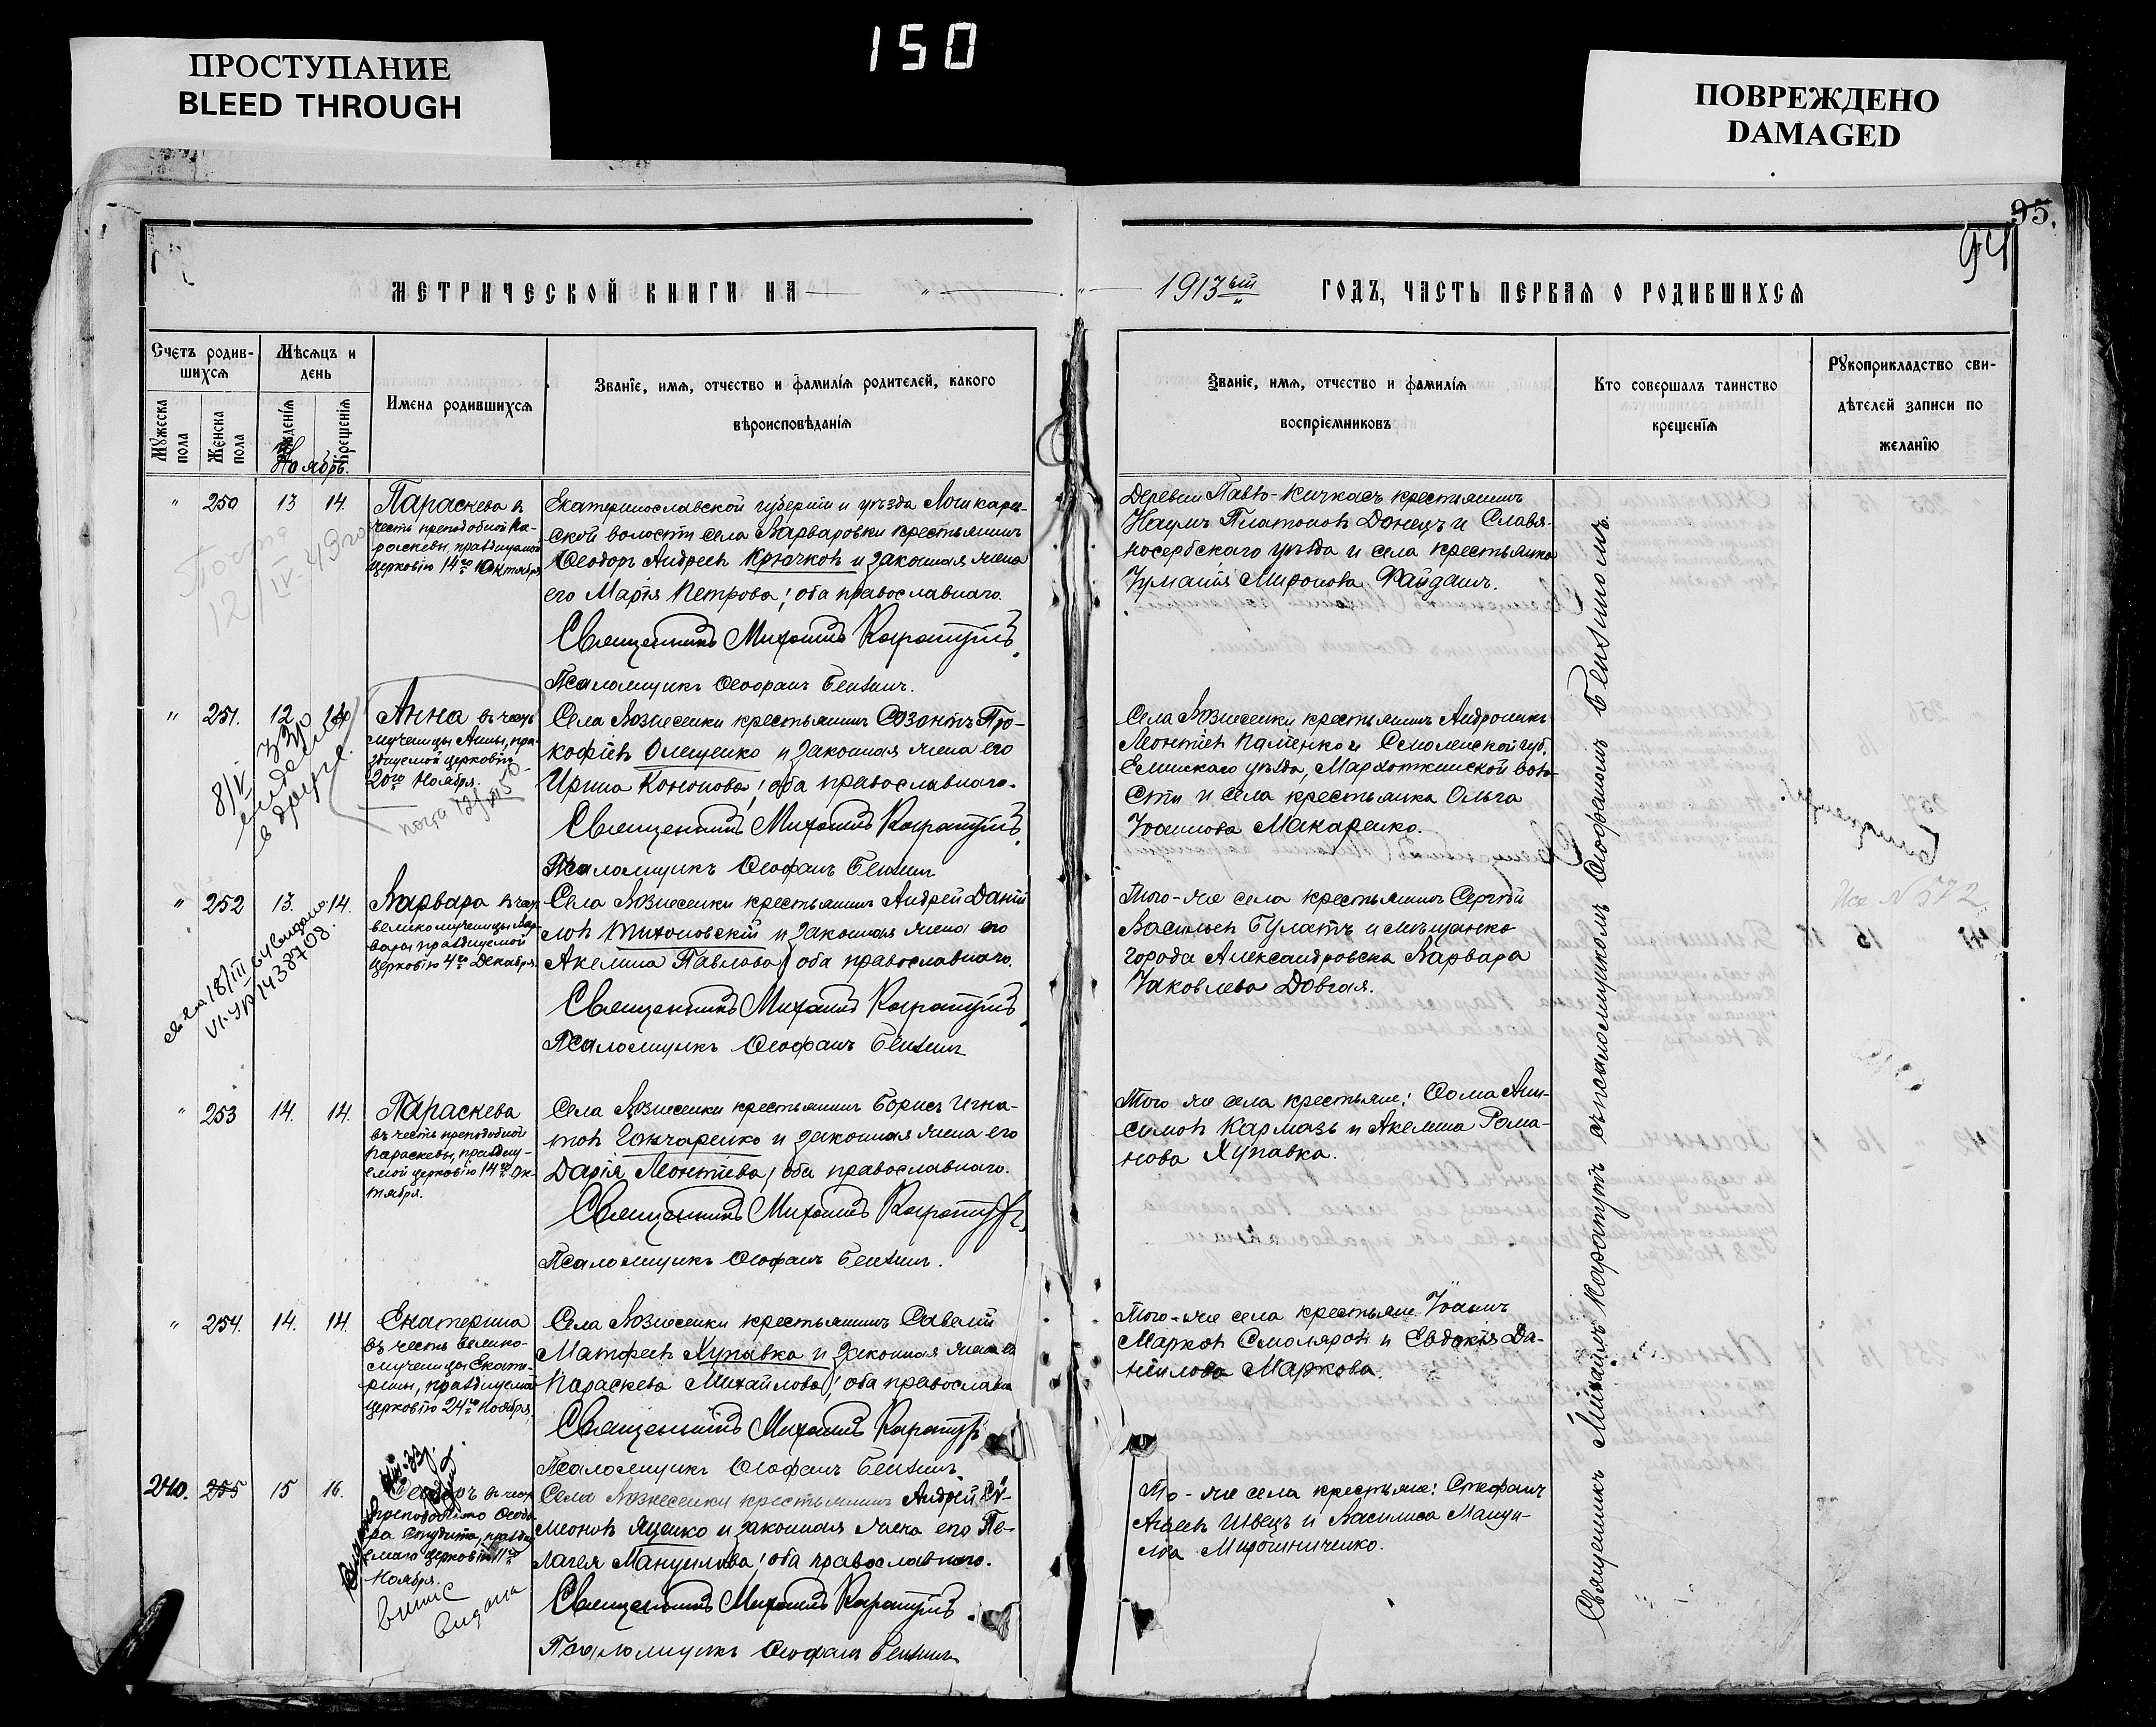 150
ПРОСТУПАНИЕ
BLEED THROUGH
ПОВРЕЖДЕНО
DAMAGED
95.
94
МЕТРИЧЕСКОЙ КНИГИ НА
1913ый ГОДЪ, ЧАСТЬ ПЕРВАЯ О РОДИВШИХСЯ
Счетъ родив-
шихся
Мужеска пола
Женска пола
Мѣсяцъ и
день
рожденія
крещенія
Имена родившихся
Званіе, имя, отчество и фамилія родителей, какого
вѣроисповѣданія
Званіе, имя, отчество и фамилія
воспріемниковъ
Кто совершалъ таинство
крещенія
Рукоприкладство сви-
дѣтелей записи по
желанію
Ноябрь.
" 250 13 14.
Параскева въ
честь преподобной Па-
раскевы, празднуемой
церковію 14го Октября
Екатеринославской губерніи и уѣзда Лошкарев-
ской волости села Варваровки крестьянинъ
Ѳеодоръ Андреевъ Крючковъ и законная жена
его Марія Петрова; оба православнаго.
Священникъ Михаилъ Каратутъ.
Псаломщикъ Ѳеофанъ Бензинъ.
Деревни Павло-Кичкасъ крестьянинъ
Наумъ Платоновъ Донецъ и Славя-
носербскаго уѣзда и села крестьянка
Іуманія Миронова Файдашъ.
" 251. 12 14
Анна въ честь
мученицы Анны, пра-
зднуемой церковію
20го Ноября.
Села Вознесенки крестьянинъ Созонтъ Про-
кофіевъ Олещенко и законная жена его
Ирина Кононова; оба православнаго.
Священникъ Михаилъ Каратутъ.
Псаломщикъ Ѳеофанъ Бензинъ
Села Вознесенки крестьянинъ Андроникъ
Леонтіевъ Каменко и Смоленской губ.
Ельнскаго уѣзда, Мархоткинской воло-
сти и села крестьянка Ольга
Іоаннова Макаренко.
" 252 13. 14.
Варвара въ чес.
великомученицы Вар-
вары празднуемой
церковію 4го Декабря.
Села Вознесенки крестьянинъ Андрей Даніи-
ловъ Тихоновскій и законная жена его
Акелина Павлова; оба православнаго.
Священникъ Михаилъ Каратутъ
Псаломщикъ Ѳеофанъ Бензинъ
Того-же села крестьянинъ Сергѣй
Васильевъ Булатъ и мѣщанка
города Александровска Варвара
Іаковлева Довгая.
" 253 14. 14.
Параскева
въ честь преподобной
Параскевы, праздну-
емой церковію 14го Ок-
тября.
Села Вознесенки крестьянинъ Борисъ Игна-
товъ Гончаренко и законная жена его
Дарія Леонтіева; оба православнаго.
Священникъ Михаилъ Каратутъ
Псаломщикъ Ѳеофанъ Бензинъ.
Того же села крестьяне: Ѳома Ани-
симовъ Кармазь и Акелина Рома-
нова Хупавка.
" 254. 14. 14.
Екатерина
въ честь Велико-
мученицы Екате-
рины, празднуемой
церковію 24го Ноября
Села Вознесенки крестьянинъ Савелій
Матфеевъ Хупавка и законная жена его
Параскева Михайлова; оба православна
Священникъ Михаилъ Каратутъ
Псаломщикъ Ѳеофанъ Бензинъ.
Того-же села крестьяне Іоаннъ
Марковъ Смоляровъ и Евдокія Да-
ніилова Маркова.
240. 255 15 16.
Ѳеодоръ въ чес.
преподобнаго Ѳеодо-
ра Студита, праздну-
емаго церковію 11го
Ноября.
Села Вознесенки крестьянинъ Андрей Си-
меоновъ Яценко и законная жена его Пе-
лагея Мануилова; оба православнаго.
Священникъ Михаилъ Каратутъ.
Псаломщикъ Ѳеофанъ Бензинъ
То-же села крестьяне: Стефанъ
Агаевъ Швецъ и Василиса Мануи-
лова Мирошниченко.
Священникъ Михаилъ Каратутъ съ псаломщикомъ Ѳеофаномъ Бензиномъ.
выдана